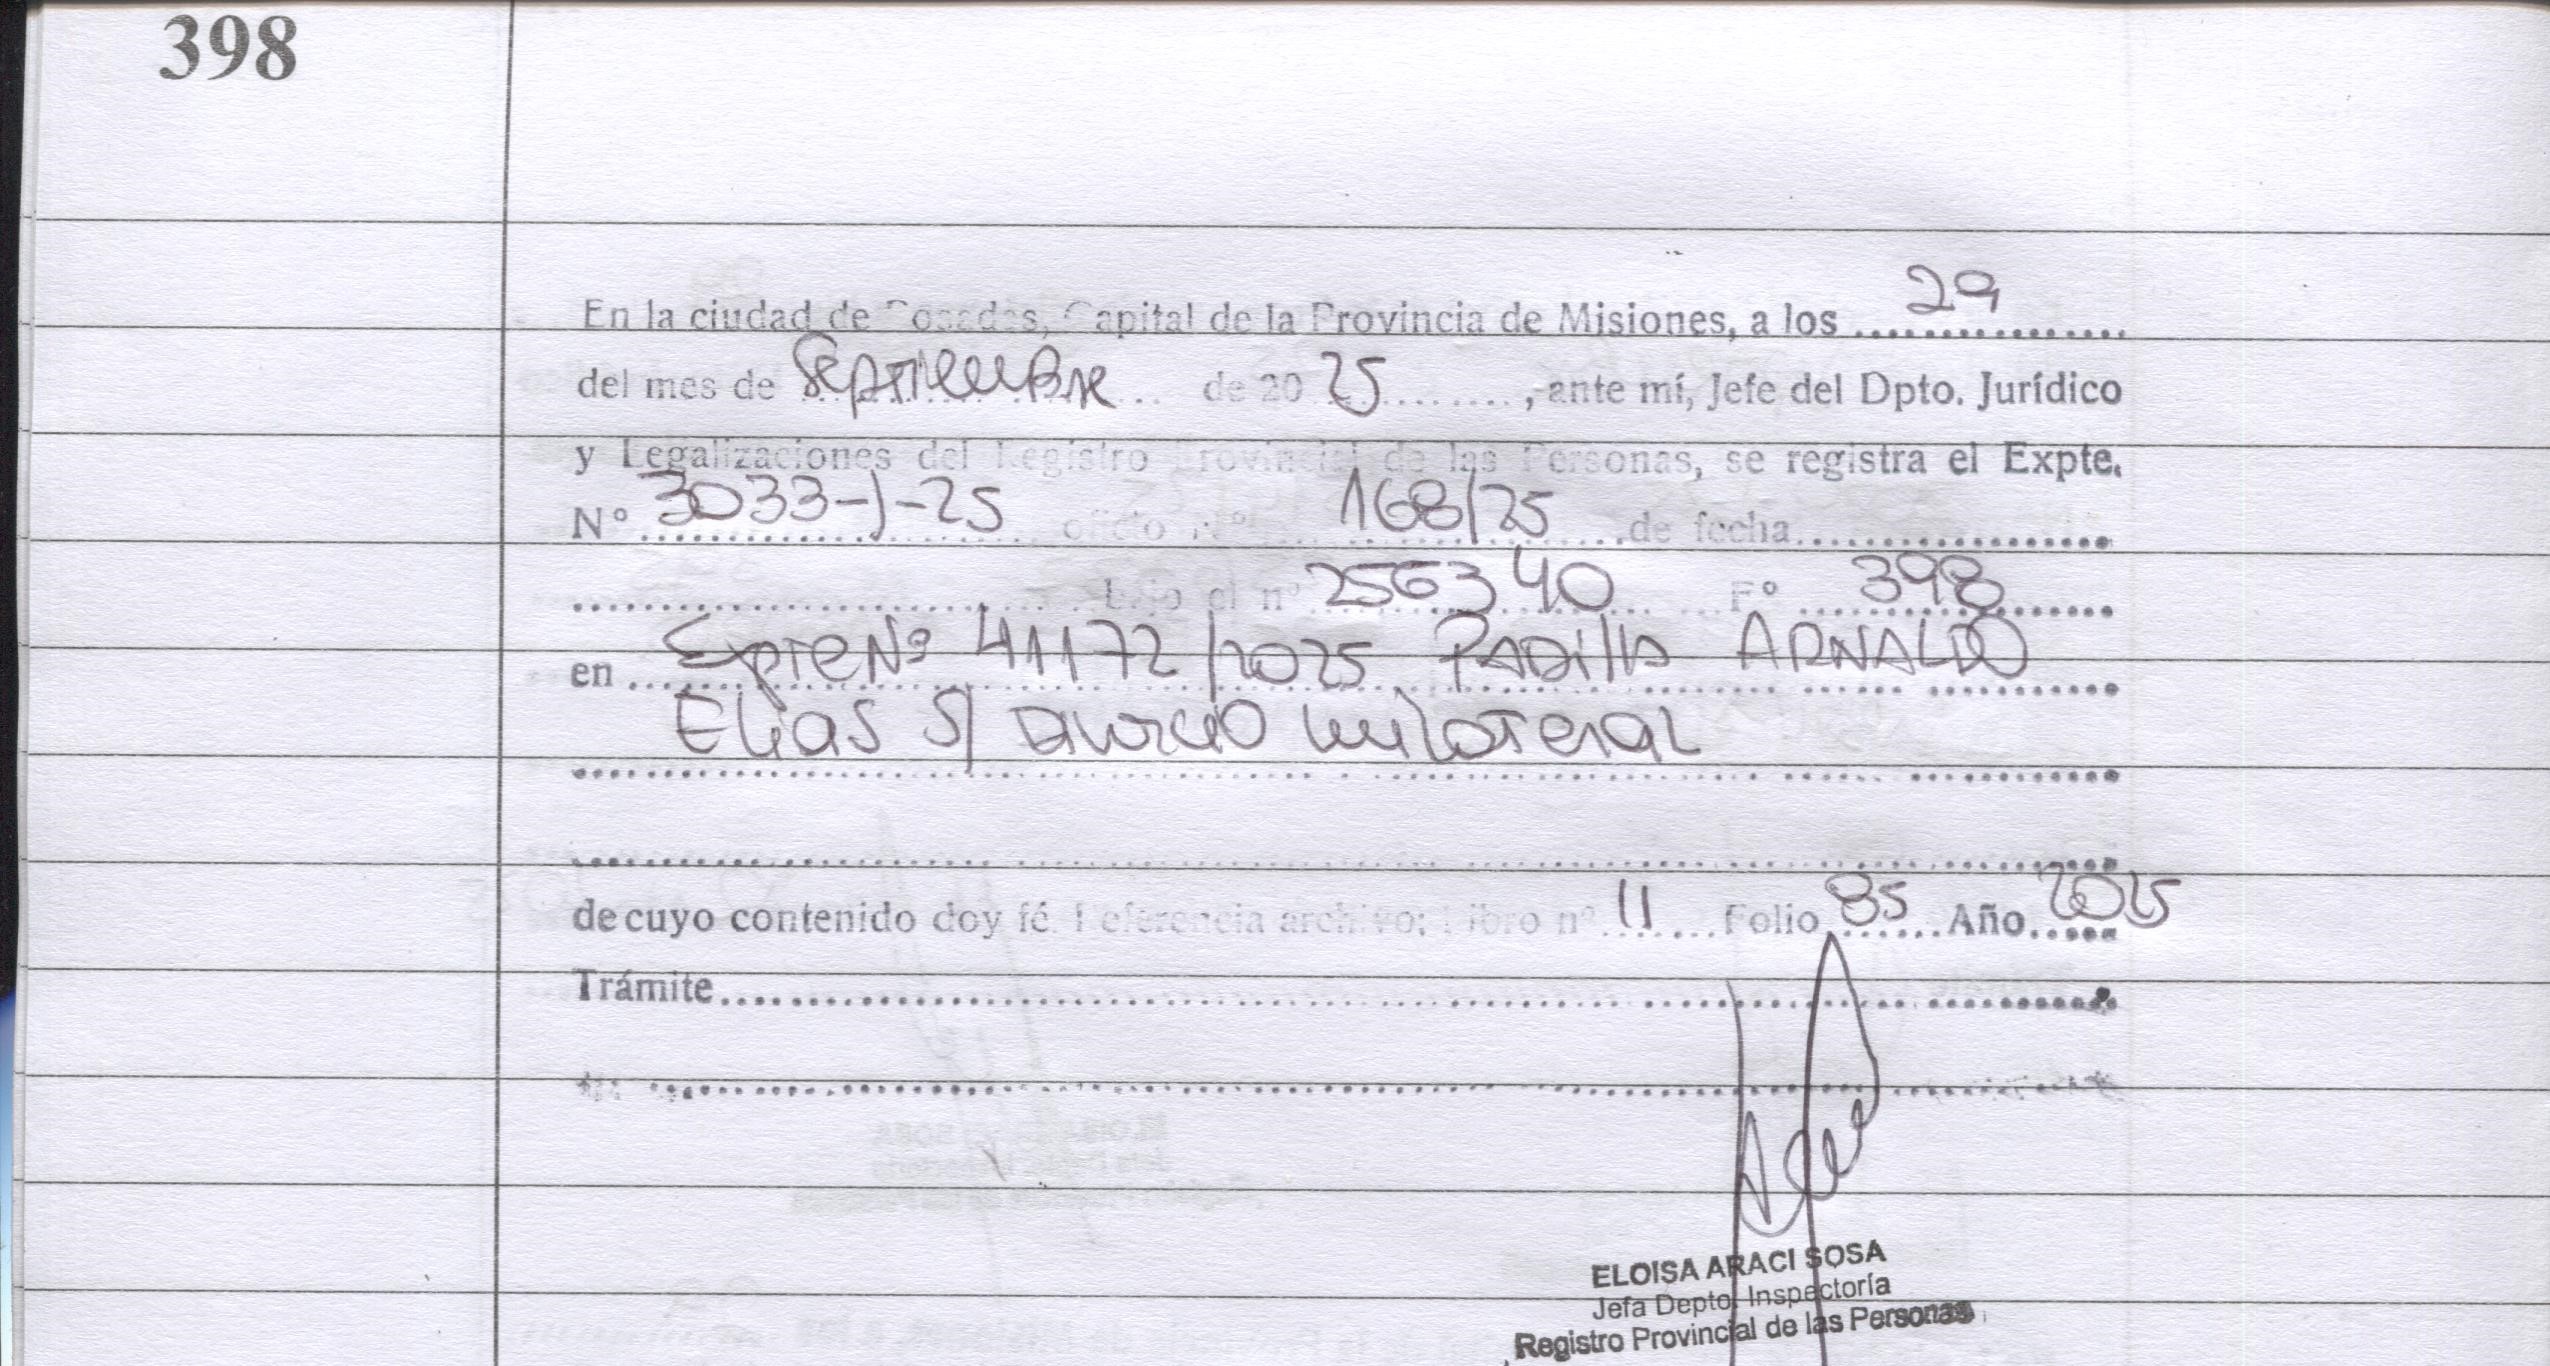 398
En la ciudad de Posadas, Capital de la Provincia de Misiones, a los 29
del mes de Septiembre de 20 25, ante mí, Jefe del Dpto. Jurídico
y Legalizaciones del Registro Provincial de las Personas, se registra el Expte.
Nº 3033-J-25 oficio Nº 168/25 de fecha
bajo el nº 256340 Fº 398
en Expte Nº 41172/2025 PADILLA ARNALDO
Elias S/ Divorcio unilateral
de cuyo contenido doy fé. Referencia archivo: Libro nº 11 Folio 85 Año 2025
Trámite
ELOISA ARACI SOSA
Jefa Depto. Inspectoría
Registro Provincial de las Personas